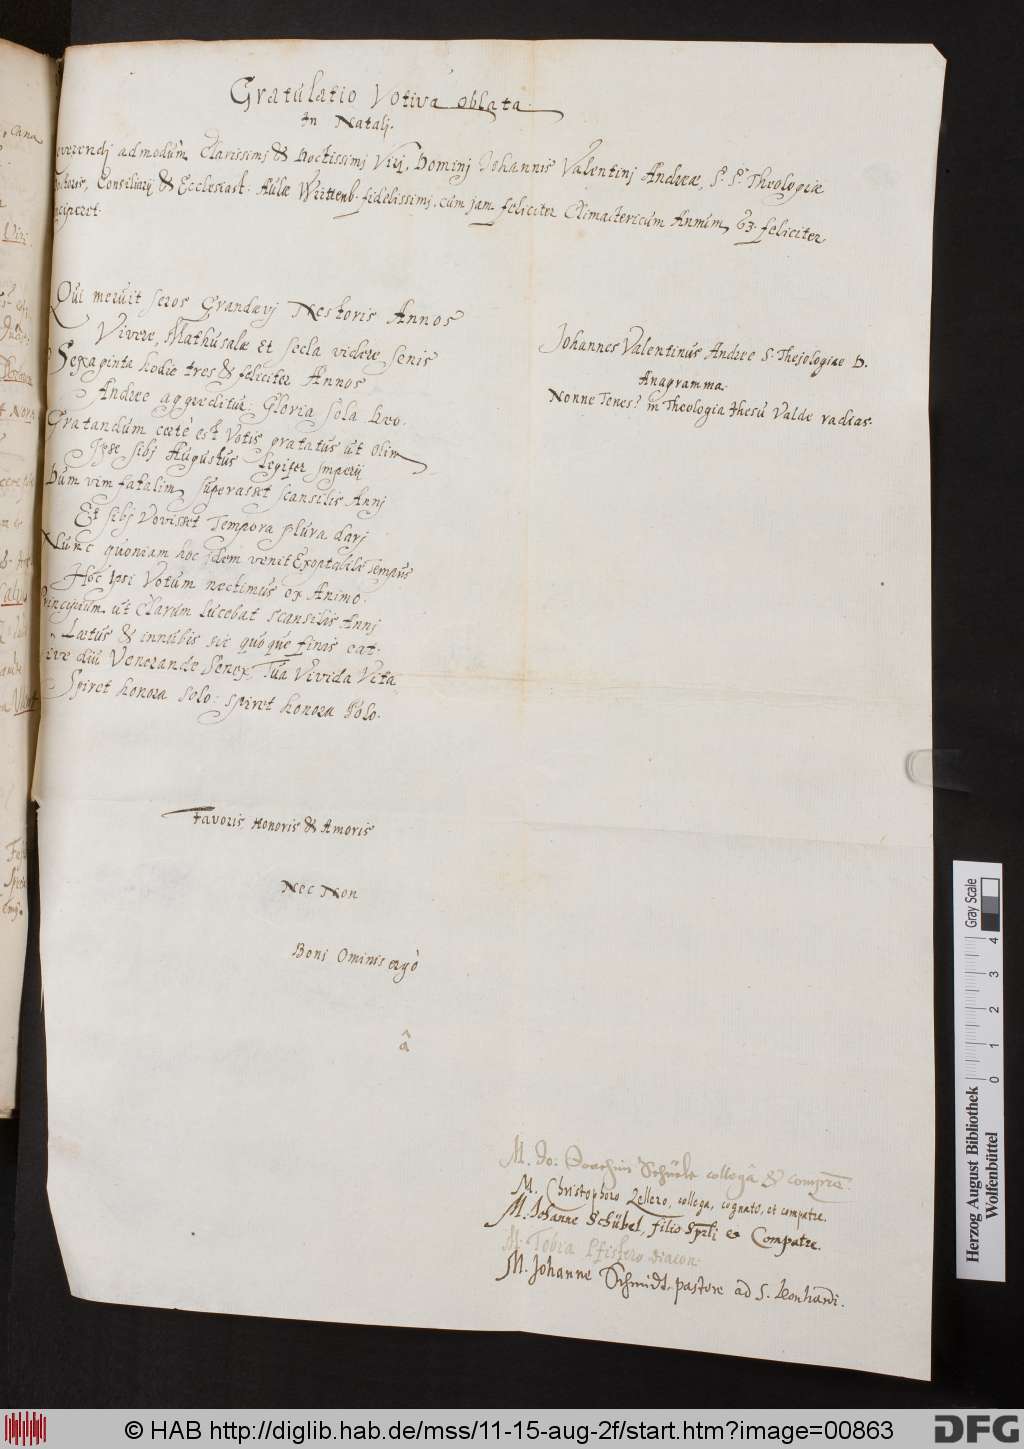 Gratulatio Votiva oblata
In Natalj.
everendj admodum Clarissimj & Doctissimj Virj, Dominj Johannis Valentinj Andreæ, S. S. Theologiæ
ctoris, Consiliarij & Ecclesiast. Aulæ Wirttenb. fidelissimj, cum jam feliciter Climactericum Annum 63. feliciter
inciperet.
Qui meruit seros Grandævj Nestoris Annos
Vivere, Mathusalæ et secla videre senis
Sexaginta hodie tres & feliciter Annos
Andreæ aggreditur: Gloria sola Deo.
Gratandum certè est Votis gratatus ut olim
Ipse sibj Augustus Legifer Imperij
Dum vim fatalim superasset scansilis Annj
Et sibj Vovisset Tempora plura darj
Nunc quoniam hoc idem venit Exoptabile Tempus
Hoc Ipsi Votum nectimus ex Animo.
Principium ut Clarum lucebat scansilis Annj
Lætus & innubis sic quoque finis eat.
ive diu Venerande Senex, Tua Vivida Vita
Spiret honora solo: spiret honora Polo.
Johannes Valentinus Andreæ S. Theologiæ D.
Anagramma.
Nonne Tenes? in Theologia Jhesu Valde radias.
Favoris, Honoris & Amoris
Nec Non
Boni Ominis ergò
â
M. Jo: Joachim Schüele collegâ & compre.
M. Christophoro Zellero, collega, cognato, et compatre.
M. Johanne Schübel, filio Sprli & Compatre.
M. Tobia Pfistero diacon:
M. Johanne Schmidt, pastore ad S. Leonhardi.
Herzog August Bibliothek
Wolfenbüttel
Gray Scale
0 1 2 3 4
© HAB http://diglib.hab.de/mss/11-15-aug-2f/start.htm?image=00863
DFG